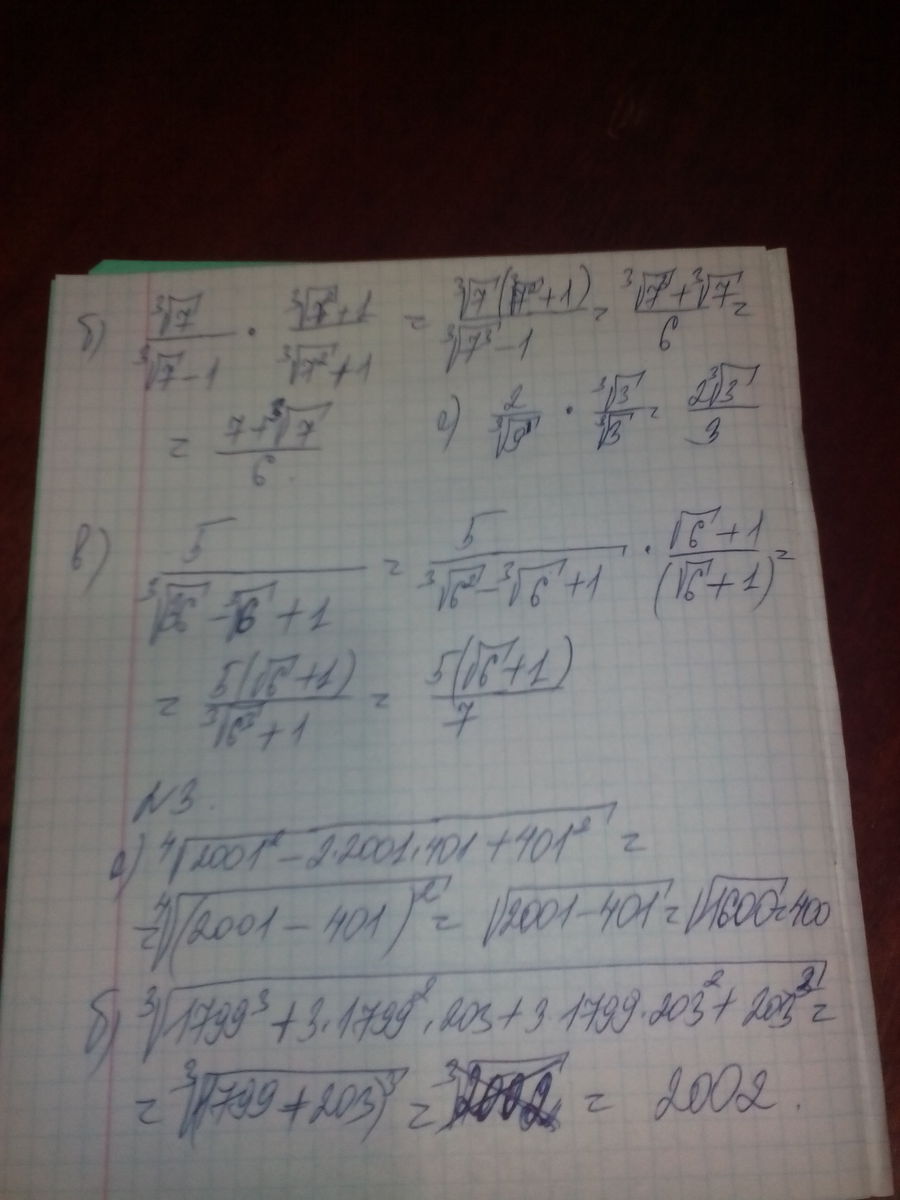 б) ∛7/(∛7-1) · (∛7²+1)/(∛7²+1) = ∛7(∛7²+1)/(∛7³-1) = (∛7³+∛7)/6 =
= (7+∛7)/6. а) 2/∛9 · ∛3/∛3 = 2∛3/3
в) 5/(∛36-∛6+1) = 5/(∛6²-∛6+1) · (√6+1)/(√6+1) =
= 5(√6+1)/(∛6³+1) = 5(√6+1)/7
N3.
а) ∜(2001²-2·2001·401+401²) =
= ∜((2001-401)²) = √(2001-401) = √1600 = 400
б) ∛(1799³+3·1799²·203+3·1799·203²+203³) =
= ∛((1799+203)³) = ∛2002 = 2002.